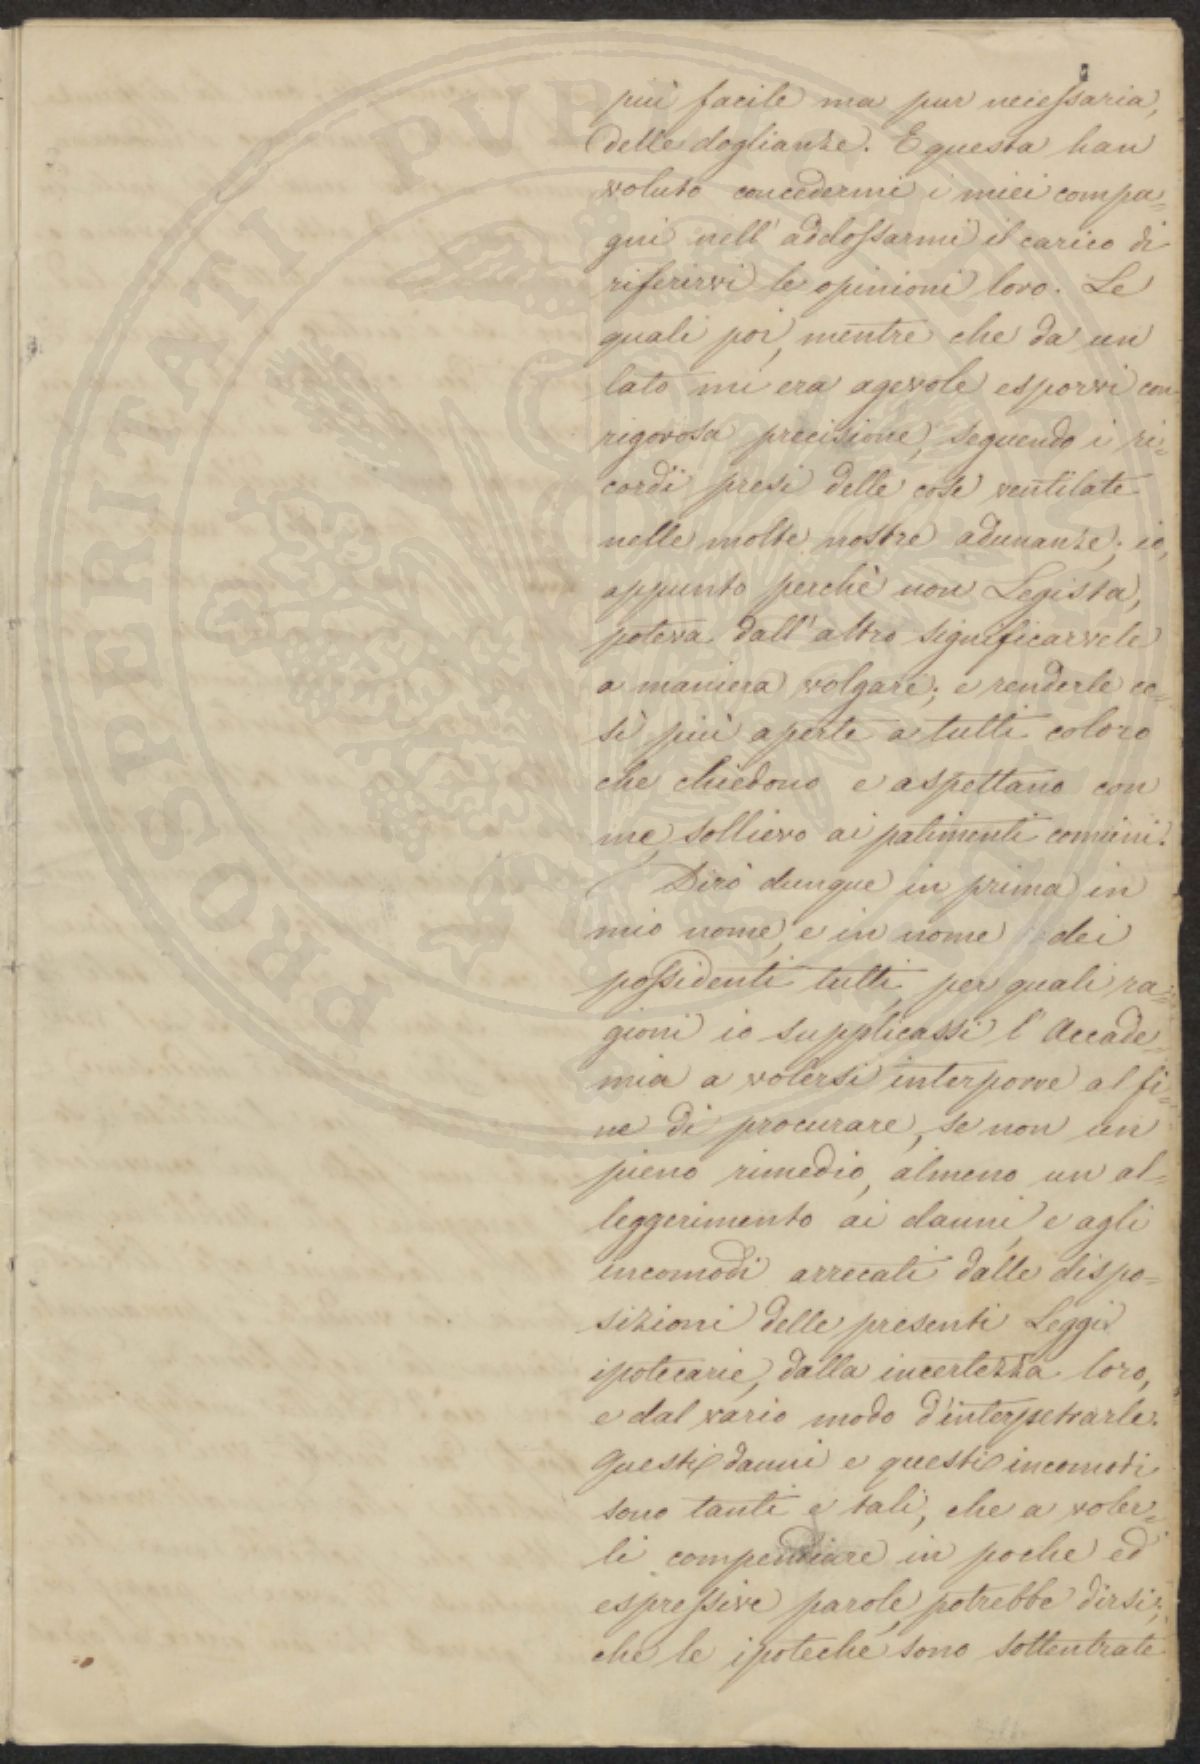 più facile ma pur necessaria,
delle doglianze. E questa han
voluto concedermi i miei compa=
gni nell'addossarmi il carico di
riferirvi le opinioni loro. Le
quali poi, mentre che da un
lato mi era agevole esporvi con
rigorosa precisione, seguendo i ri=
cordi presi delle cose ventilate
nelle molte nostre adunanze; io,
appunto perchè non Legista,
poteva dall'altro significarvele
a maniera volgare; e renderle co=
sì più aperte a tutti coloro
che chiedono e aspettano con
me, sollievo ai patimenti comuni.
Dirò dunque in prima in
mio nome, e in nome dei
possidenti tutti, per quali ra=
gioni io supplicassi l'Accade=
mia a volersi interporre al fi=
ne di procurare, se non un
pieno rimedio, almeno un al=
leggerimento ai danni, e agli
incomodi arrecati dalle dispo=
sizioni delle presenti Leggi
ipotecarie, dalla incertezza loro,
e dal vario modo d'interpetrarle.
Questi danni e questi incomodi
sono tanti e tali, che a voler=
li compendiare in poche ed
espressive parole, potrebbe dirsi;
che le ipoteche sono sottentrate
PROSPERITATI PVBLICAE